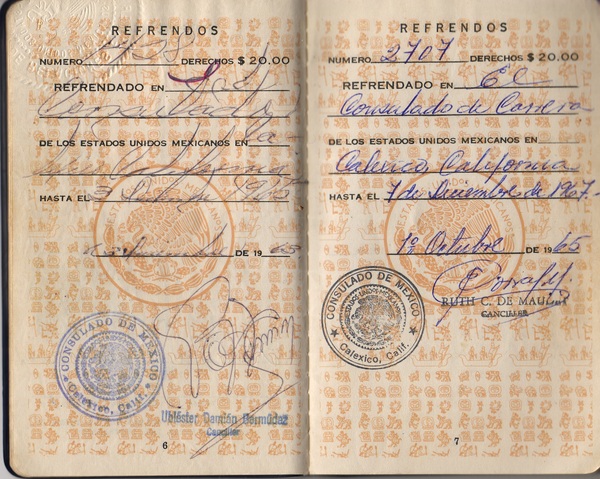 REFRENDOS
NUMERO 1428 DERECHOS $ 20.00
REFRENDADO EN El
Consulado
DE LOS ESTADOS UNIDOS MEXICANOS EN
California
HASTA EL 3
DE 1965
CONSULADO DE MEXICO
Calexico, Calif.
Ubléster Damián Bermúdez
Canciller
6
REFRENDOS
NUMERO 2707 DERECHOS $ 20.00
REFRENDADO EN El
Consulado de Carrera
DE LOS ESTADOS UNIDOS MEXICANOS EN
Calexico, California
HASTA EL 7 de Diciembre de 1967.-
1º Octubre DE 1965
CONSULADO DE MEXICO
ESTADOS UNIDOS MEXICANOS
Calexico, Calif.
RUTH C. DE
CANCILLER
7